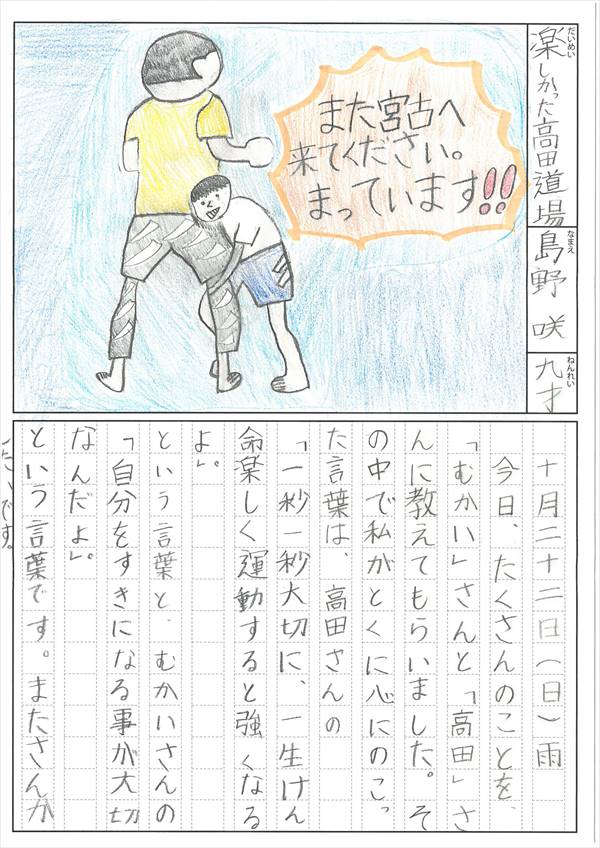 だいめい
楽しかった高田道場
なまえ
島野 咲
ねんれい
九才
また宮古へ
来てください。
まっています!!
十月二十二日(日)雨
今日、たくさんのことを、
「むかい」さんと「高田」さ
んに教えてもらいました。そ
の中で私がとくに心にのこっ
た言葉は、高田さんの
「一秒一秒大切に、一生けん
命楽しく運動すると強くなる
よ」。
という言葉と、むかいさんの
「自分をすきになる事が大切
なんだよ」。
という言葉です。またさんか
したいです。